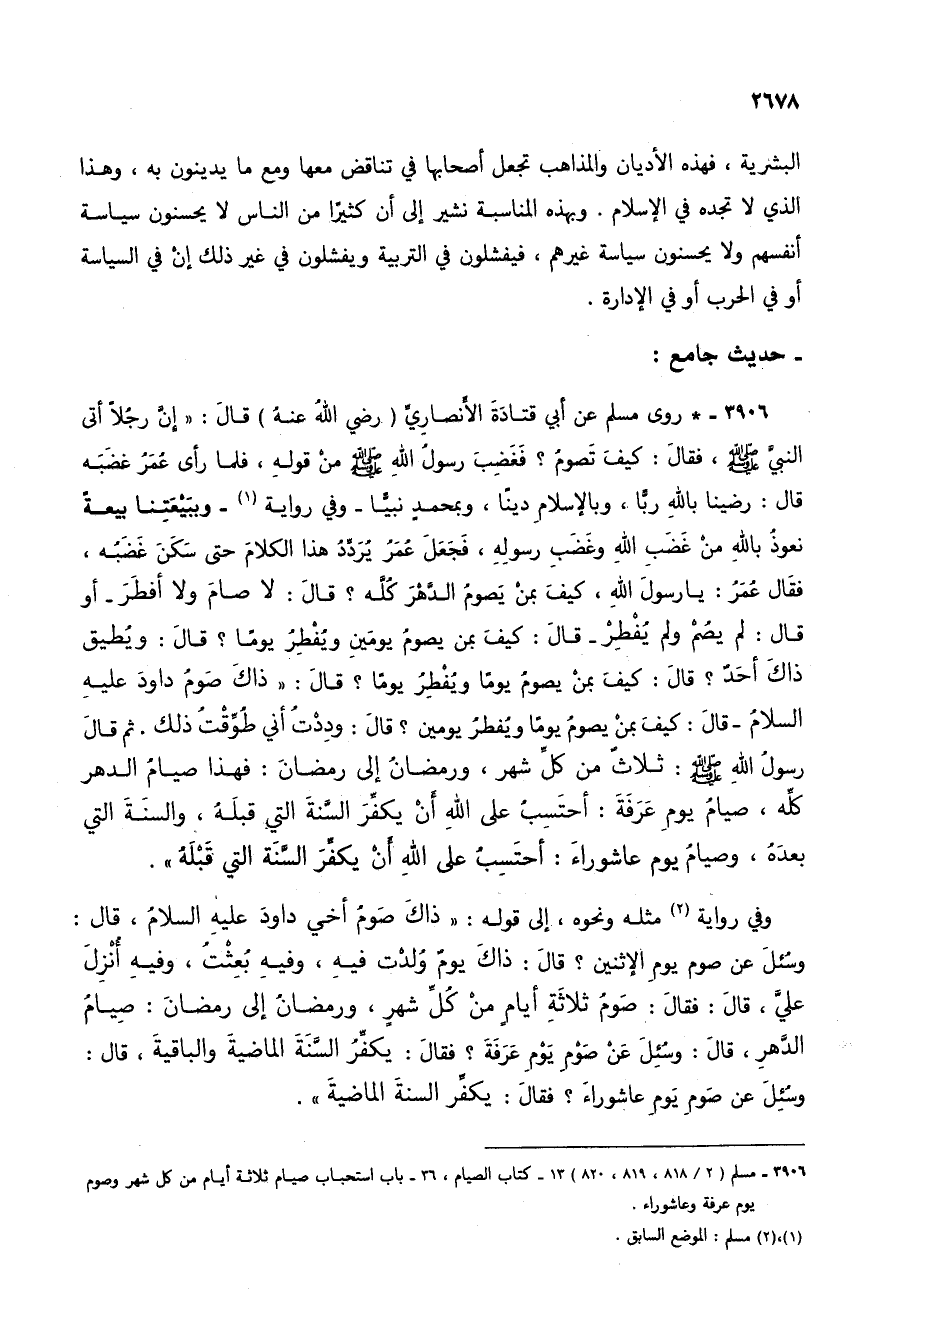 ٢٦٧٨
البشرية ، فهذه الأديان والمذاهب تجعل أصحابها في تناقض معها ومع ما يدينون به ، وهـذا
الذي لا تجده في الإسلام . وبهذه المناسبة نشير إلى أن كثيرًا من الناس لا يحسنون سياسة
أنفسهم ولا يحسنون سياسة غيرهم ، فيفشلون في التربية ويفشلون في غير ذلك إنْ في السياسة
أو في الحرب أو في الإدارة .
ـ حديث جامع :
٣٩٠٦ ـ * روى مسلم عن أبي قتادَةَ الأنصاريِّ ( رضي اللهُ عنهُ ) قالَ : « إنَّ رجُلاً أتى
النبيَّ ﷺ ، فقالَ : كيفَ تَصومُ ؟ فَغَضِبَ رسولُ اللهِ ﷺ منْ قولهِ ، فلما رأى عُمَرُ غضبَه
قال : رضينا باللهِ ربًّا ، وبالإسلامِ دينًا ، وبمحمدٍ نبيًّا ـ وفي رواية (١) ـ وببَيْعَتِنا بيعةً
نعوذُ باللهِ منْ غَضَبِ اللهِ وغَضَبِ رسولهِ ، فَجَعَلَ عُمَرُ يُرَدِّدُ هذا الكلامَ حتى سَكَنَ غَضَبُه ،
فقالَ عُمَرُ : يارسولَ اللهِ ، كيفَ بمنْ يَصومُ الدَّهْرَ كُلَّه ؟ قالَ : لا صامَ ولا أفطَرَ ـ أو
قال : لم يصُمْ ولم يُفْطِرْ ـ قالَ : كيفَ بمن يصومُ يومَينِ ويُفْطِرُ يومًا ؟ قالَ : ويُطيق
ذاكَ أحَدٌ ؟ قالَ : كيفَ بمنْ يصومُ يومًا ويُفْطِرُ يومًا ؟ قالَ : « ذاكَ صَومُ داودَ عليه
السلامُ ـ قالَ : كيفَ بمنْ يصومُ يومًا ويُفطرُ يومين ؟ قالَ : وددْتُ أني طُوِّقْتُ ذلك . ثم قالَ
رسولُ اللهِ ﷺ : ثلاثٌ من كلِّ شهر ، ورمضانُ إلى رمضانَ : فهذا صيامُ الدهر
كلِّه ، صيامُ يومِ عَرَفَةَ : أحتَسِبُ على اللهِ أنْ يكفِّرَ السَّنةَ التي قبلَهُ ، والسنَةَ التي
بعدَهُ ، وصيامُ يوم عاشوراءَ : أحتَسِبُ على اللهِ أنْ يكفِّرَ السَّنَة التي قَبْلَهُ » .
وفي رواية (٢) مثله ونحوه ، إلى قوله : « ذاكَ صَومُ أخي داودَ عليهِ السلامُ ، قال :
وسُئلَ عن صوم يومِ الإثنين ؟ قالَ : ذاكَ يومٌ وُلدْت فيهِ ، وفيهِ بُعِثْتُ ، وفيهِ أُنْزِلَ
عليَّ ، قالَ : فقالَ : صَومُ ثلاثَةِ أيامٍ منْ كُلِّ شهرٍ ، ورمضانُ إلى رمضانَ : صِيامُ
الدَّهرِ ، قالَ : وسُئِلَ عَنْ صَوْمِ يَوْمِ عَرَفَةَ ؟ فقالَ : يكفِّرُ السَّنَةَ الماضيةَ والباقيةَ ، قال :
وسُئِلَ عن صَومِ يَومِ عاشوراءَ ؟ فقالَ : يكفِّر السنةَ الماضيةَ » .
٣٩٠٦ ـ مسلم ( ٢ / ٨١٨ ، ٨١٩ ، ٨٢٠ ) ١٣ ـ كتاب الصيام ، ٣٦ ـ باب استحباب صيام ثلاثة أيام من كل شهر وصوم
يوم عرفة وعاشوراء .
(١)،(٢) مسلم : الموضع السابق .